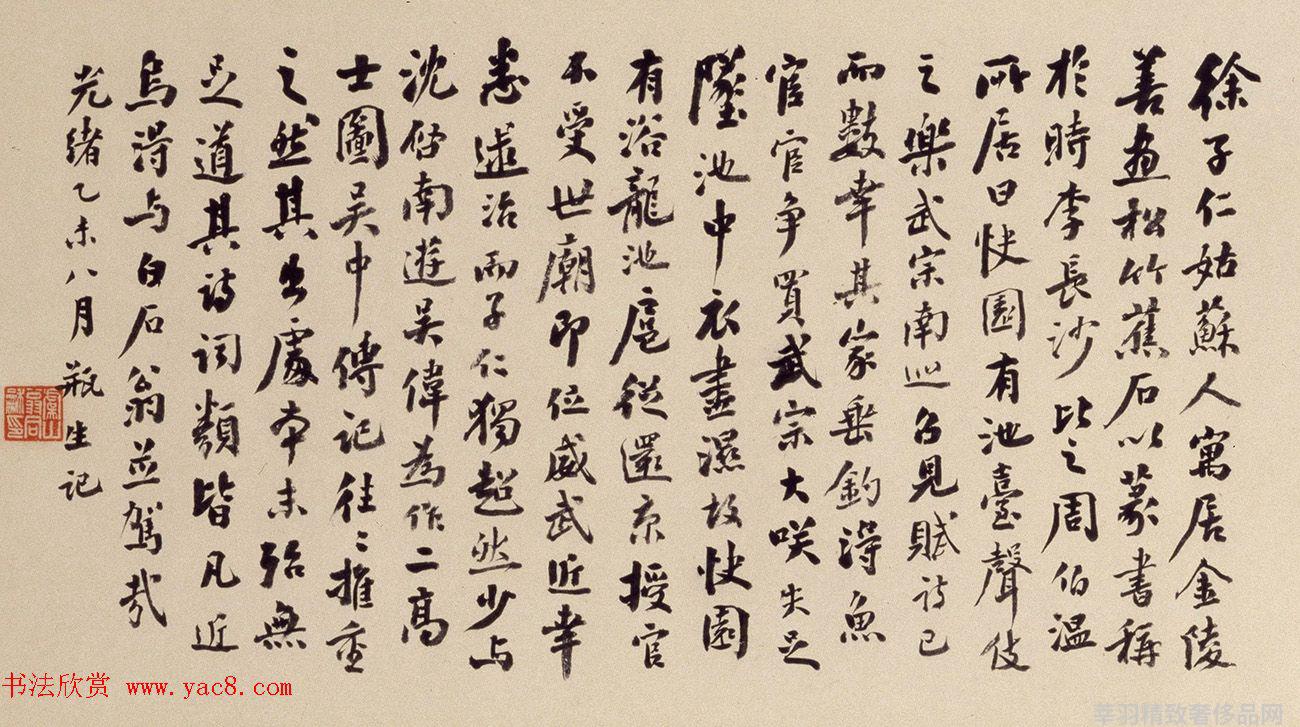 徐子仁姑蘇人寓居金陵
善畫松竹蕉石以篆書稱
於時李長沙比之周伯温
所居曰快園有池臺聲伎
之樂武宗南巡召見賦詩已
而數幸其家垂釣得魚
宦官争買武宗大咲失足
墮池中衣盡濕故快園
有浴龍池扈從還京授官
不受世廟即位威武近幸
悉逮治而子仁獨超然少与
沈啓南遊吴偉為作二高
士圖吴中傳記往〻推重
之然其出處本末殆無
足道其詩詞類皆凡近
烏得与白石翁並駕哉
光緒乙未八月瓶生記
虞山翁同龢印
书法欣赏 www.yac8.com
莘羽精致奢侈品网